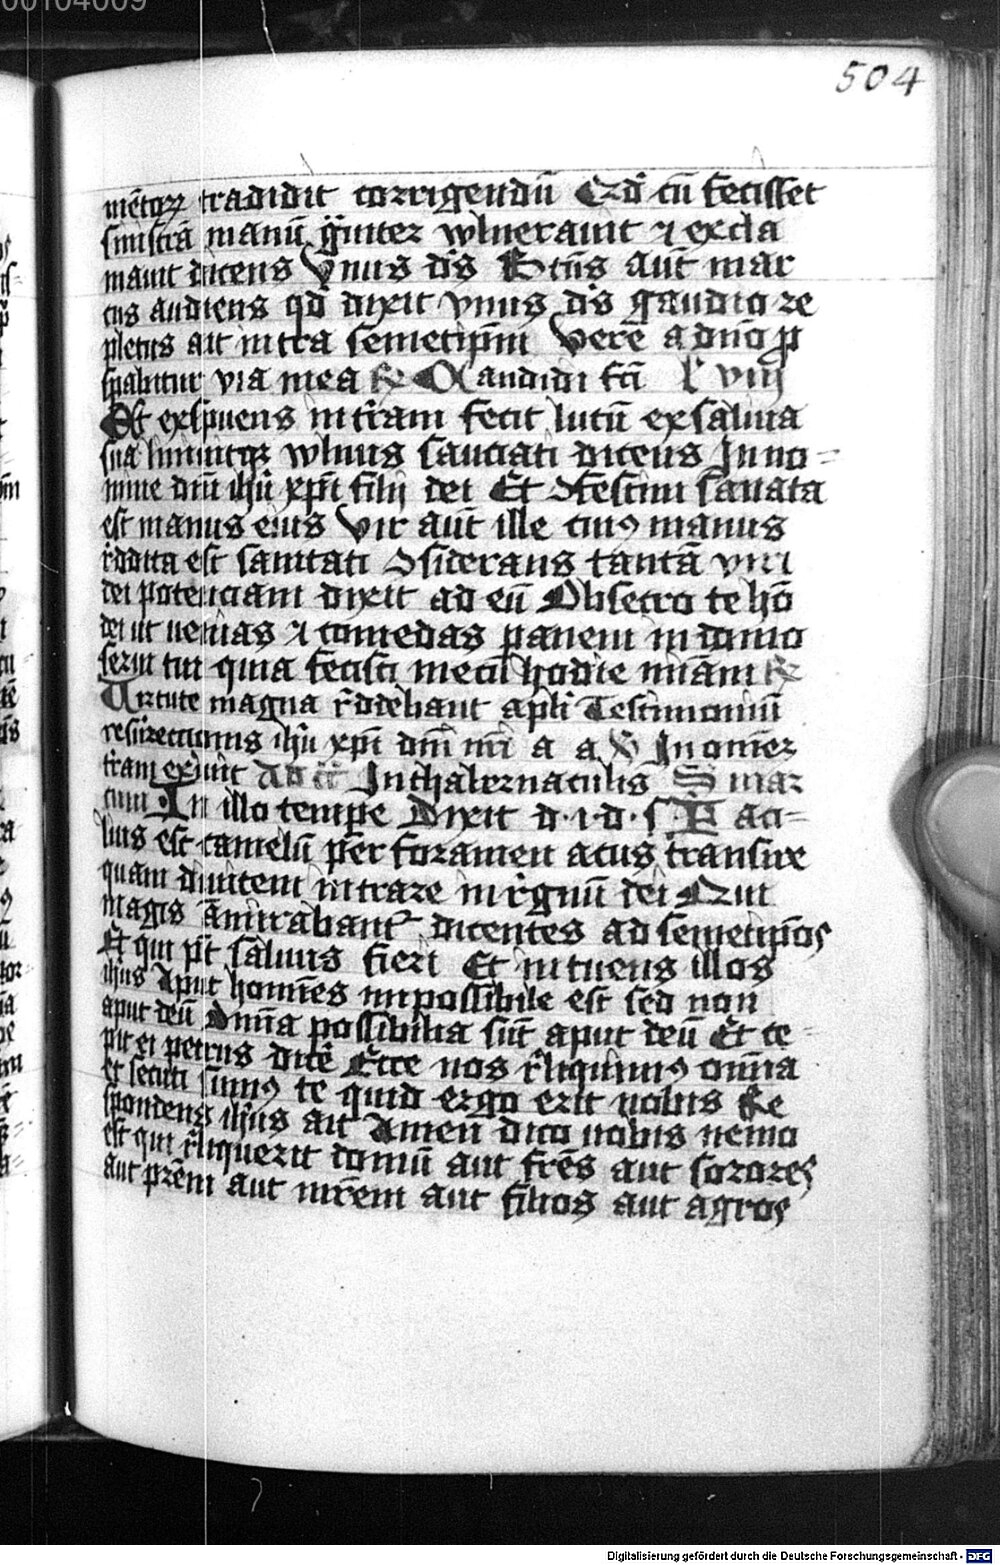 00104009
504
mētoꝝ tradidit corrigendū Qd̄ cū fecisset
sinistrā manū gͣuiter wlnerauit ⁊ excla
mauit dicens Vnus dꝰs Btūs aūt mar
cus audiens qd̄ dixit vnus dꝰs gaudio re
pletus ait intra semetipm̄ Vere a dn̄o ꝓ
spabitur via mea ℞ candidi fc̄i l viij
Et exspuens in tr̄am fecit lutū ex saliua
sua liniuitqꝫ wlnus sauciati dicens In no=
mine dn̄i ih̄u xp̄i filij dei Et ꝯfestim sanata
est manus eius Vir aūt ille cuiꝰ manus
r̄ddita est sanitati ꝯsiderans tantā viri
dei potenciam dixit ad eū Obsecro te hō
dei ut uenias ⁊ comedas panem in domo
serui tui quia fecisti mecū hodie mīam ℞
Virtute magna r̄ddebant apl̄i Testimoniū
resurrectionis ih̄u xp̄i dn̄i nr̄i a a V In omnē
tr̄am exiuit Ad In thabernaculis S mar
cum In illo tempe Dixit d. i. d. s. F aci=
lius est camelū per foramen acus transire
quam diuitem intrare in r̄gnū dei Qui
magis āmirabantᷣ dicentes ad semetipōs
Et qui pt̄ saluus fieri Et intuens illos
ih̄us Aput homīes impossibile est sed non
aput deū Omīa possibilia sūt aput deū Et ce=
pit ei petrus dicē Ecce nos r̄liquimꝰ omīa
et secuti sumꝰ te quid ergo erit nobis Re
spondens ih̄us ait Amen dico uobis nemo
est qui r̄liquerit domū aut frēs aut sorores
aut prēm aut mrēm aut filios aut agros
Digitalisierung gefördert durch die Deutsche Forschungsgemeinschaft - DFG